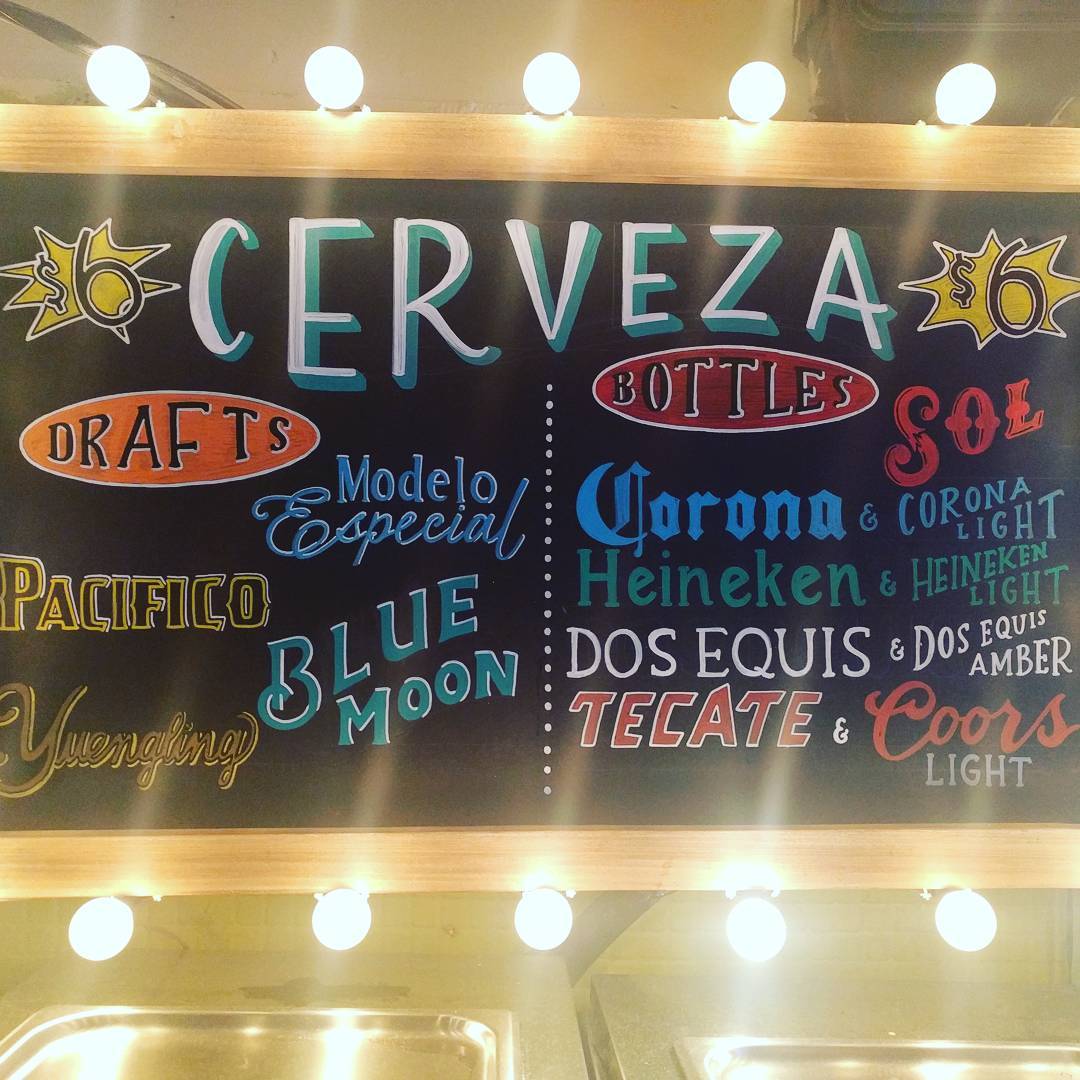 $6 CERVEZA $6
DRAFTS
Modelo
Especial
PACIFICO
BLUE
MOON
Yuengling
BOTTLES
SOL
Corona & CORONA
LIGHT
Heineken & HEINEKEN
LIGHT
DOS EQUIS & DOS EQUIS
AMBER
TECATE & Coors
LIGHT